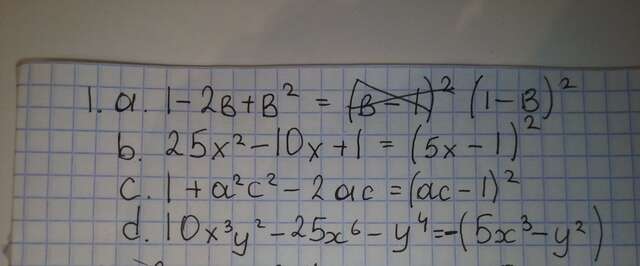 1. a. 1 - 2в + в² = (в - 1)² (1 - в)²
b. 25x² - 10x + 1 = (5x - 1)²
c. 1 + a²c² - 2ac = (ac - 1)²
d. 10x³y² - 25x⁶ - y⁴ = -(5x³ - y²)